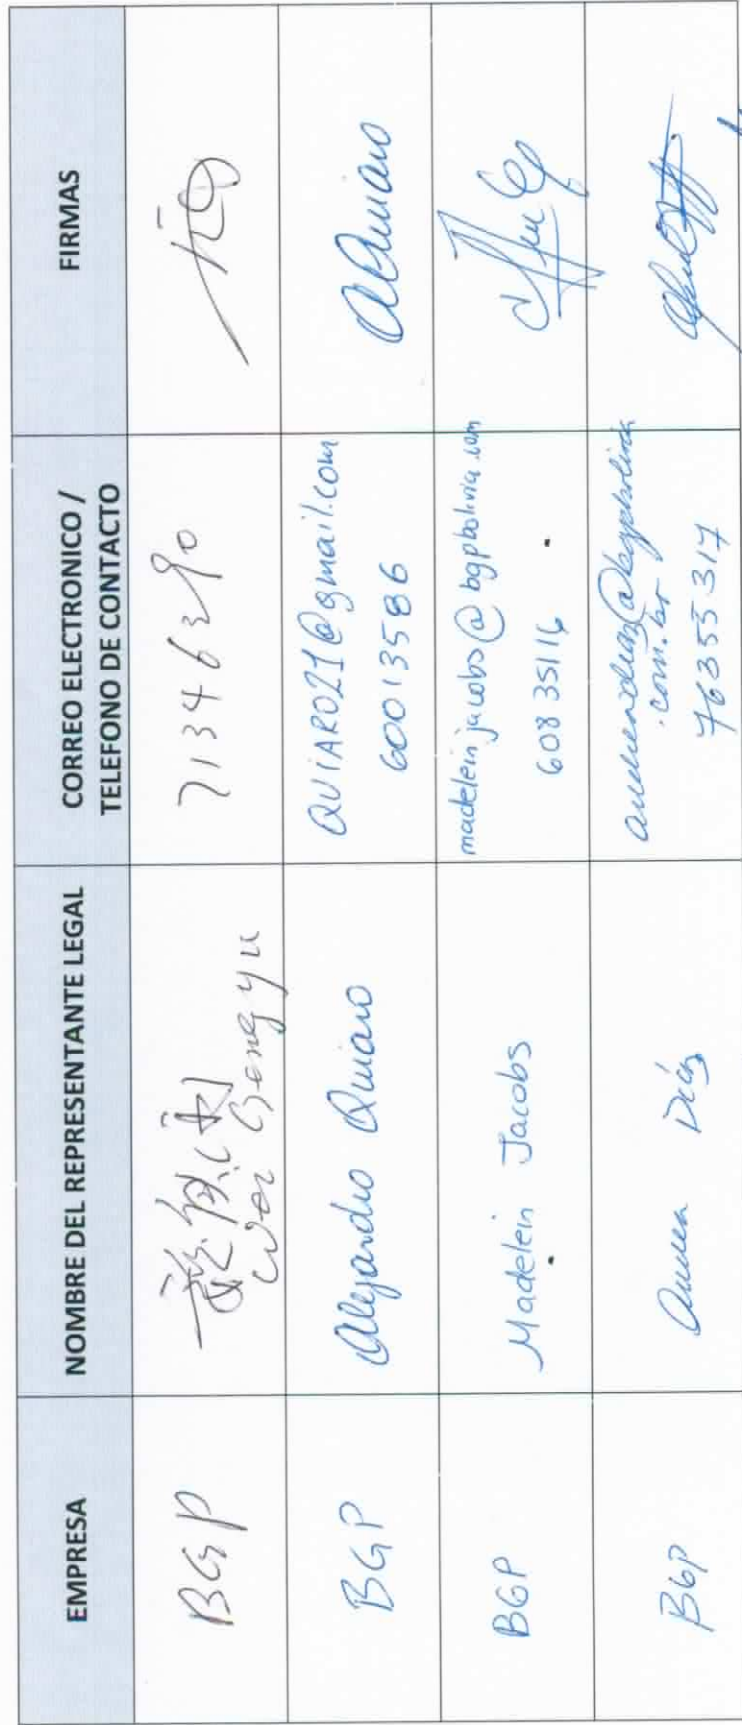 EMPRESA
NOMBRE DEL REPRESENTANTE LEGAL
CORREO ELECTRONICO /
TELEFONO DE CONTACTO
FIRMAS
BGP
Wei Gengyu
71346290
BGP
Alejandro Quiaro
QUIARO21@gmail.com
60013586
AQuiaro
BGP
Madelein Jacobs
madelein.jacobs@bgpbolivia.com
60835116
BGP
Díaz
76355317